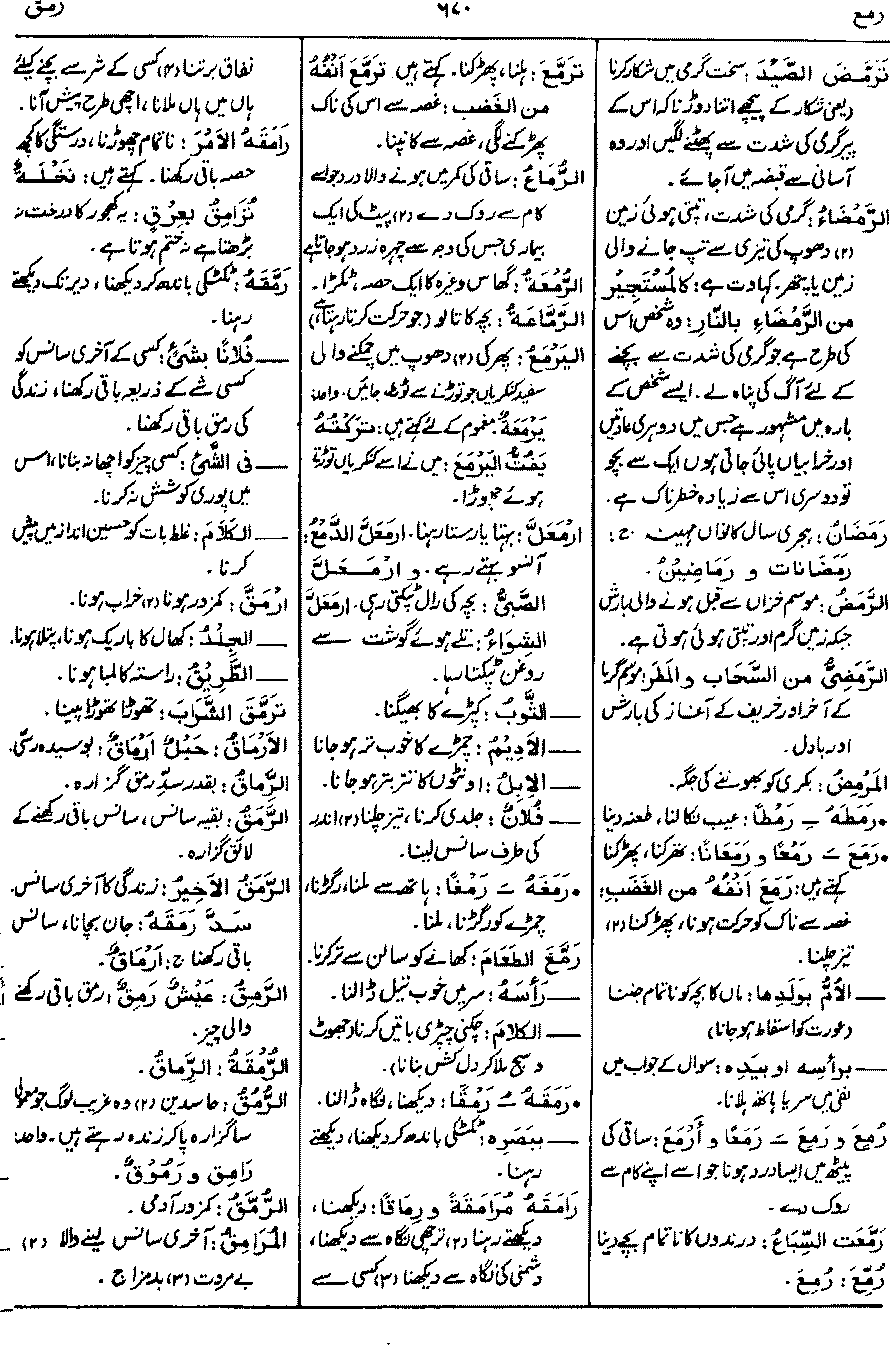 رمع
٦٨٠
رمق
تَرَمَّضَ الصَّيْدَ: سخت گرمی میں شکار کرنا
یعنی شکار کے پیچھے اتنا دوڑنا کہ اس کے
پیر گرمی کی شدت سے پھٹنے لگیں اور وہ
آسانی سے قبضہ میں آجائے۔
الرَّمْضَاءُ: گرمی کی شدت، تپتی ہوئی زمین
(۲) دھوپ کی تیزی سے تپ جانے والی
زمین یا پتھر۔ کہاوت ہے: کالمُسْتَجِیْر
من الرَّمْضَاءِ بالنَّار: وہ شخص اس
کی طرح ہے جو گرمی کی شدت سے بچنے
کے لئے آگ کی پناہ لے۔ ایسے شخص کے
بارہ میں مشہور ہے جس میں دوہری عادتیں
اور خرابیاں پائی جاتی ہوں ایک سے بچو
تو دوسری اس سے زیادہ خطرناک ہے۔
رَمَضَانُ: ہجری سال کا نواں مہینہ ج:
رَمَضَانات و رَمَاضِیْنُ۔
الرَّمَضُ: موسم خزاں سے قبل ہونے والی بارش
جبکہ زمین گرم اور تپتی ہوئی ہوتی ہے۔
الرَّمَضِیُّ من السَّحَاب والمَطَر: موسم گرما
کے آخر اور خریف کے آغاز کی بارش
اور بادل۔
المَرْمِضُ: بکری کو بھوننے کی جگہ۔
•رَمَطَهُ ـِ رَمْطًا: عیب نکالنا، طعنہ دینا
•رَمَعَ ـَ رَمْعًا و رَمَعَانًا: تھرکنا، پھڑکنا
کہتے ہیں: رَمَعَ اَنْفُهُ من الغَضَبِ:
غصہ سے ناک کو حرکت ہونا، پھڑکنا (۲)
تیز چلنا۔
— الأُمُّ بوَلَدِها: ماں کا بچہ کو ناتمام جننا
(عورت کو اسقاط ہو جانا)
— برأسِه او بیَدِه: سوال کے جواب میں
نفی میں سر یا ہاتھ ہلانا۔
رُمِعَ و رَمِعَ ـَ رَمَعًا و أَرْمَعَ: ساقی کی
پیٹھ میں ایسا درد ہونا جو اسے اپنے کام سے
روک دے۔
رَمَّعَت السِّبَاعُ: درندوں کا ناتمام بچے دینا
رُمِّعَ: رُمِعَ۔
تَرَمَّعَ: ہلنا، پھڑکنا۔ کہتے ہیں تَرَمَّعَ اَنْفُهُ
من الغَضَب: غصہ سے اس کی ناک
پھڑکنے لگی، غصہ سے کانپنا۔
الرُّمَاعُ: ساقی کی کمر میں ہونے والا درد جو اسے
کام سے روک دے (۲) پیٹ کی ایک
بیماری جس کی وجہ سے چہرہ زرد ہو جاتا ہے
الرُّمْعَةُ: گھاس وغیرہ کا ایک حصہ، ٹکڑا۔
الرَّمَّاعَةُ: بچہ کا تالو (جو حرکت کرتا رہتا ہے)
الیَرْمَعُ: پھرکی (۲) دھوپ میں چمکنے والی
سفید کنکریاں جو توڑنے سے ٹوٹ جائیں۔ واحد:
یَرْمَعَةٌ مغموم کے لئے کہتے ہیں: تَرَکْتُهُ
یَفُتُّ الیَرْمَعَ: میں نے اسے کنکریاں توڑتے
ہوئے چھوڑا۔
ارْمَعَلَّ: بہنا یا رستا رہنا۔ ارمَعَلَّ الدَّمْعُ:
آنسو بہتے رہے۔ و ارْمَعَلَّ
الصَّبِیُّ: بچہ کی رال ٹپکتی رہی۔ ارمَعَلَّ
الشِّوَاءُ: تلے ہوئے گوشت سے
روغن ٹپکتا رہا۔
— الثَّوبُ: کپڑے کا بھیگنا۔
— الاَدِیْمُ: چمڑے کا خوب تر ہو جانا
— الاِبِلُ: اونٹوں کا تتر بتر ہو جانا۔
— فُلَانٌ: جلدی کرنا، تیز چلنا (۲) اندر
کی طرف سانس لینا۔
•رَمَغَهُ ـَ رَمْغًا: ہاتھ سے ملنا، رگڑنا،
چمڑے کو رگڑنا، ملنا۔
رَمَّغَ الطَعَامَ: کھانے کو سالن سے تر کرنا۔
— رَأسَهُ: سر میں خوب تیل ڈالنا۔
— الکلامَ: چکنی چپڑی باتیں کرنا (جھوٹ
و سچ ملا کر دل کش بنانا)۔
•رَمَقَهُ ـُ رَمْقًا: دیکھنا، نگاہ ڈالنا۔
— بِبَصَرِهِ: ٹکٹکی باندھ کر دیکھنا، دیکھتے
رہنا۔
رَامَقَهُ مُرَامَقَةً و رِمَاقًا: دیکھنا،
دیکھتے رہنا (۲) ترچھی نگاہ سے دیکھنا،
دشمنی کی نگاہ سے دیکھنا (۳) کسی سے
نفاق برتنا (۴) کسی کے شر سے بچنے کیلئے
ہاں میں ہاں ملانا، اچھی طرح پیش آنا۔
رَامَقَهُ الاَمْرَ: ناتمام چھوڑنا، درستگی کا کچھ
حصہ باقی رکھنا۔ کہتے ہیں: نَخْلَةٌ
تُرَامِقُ بِعِرْقٍ: یہ کھجور کا درخت نہ
بڑھتا ہے نہ ختم ہوتا ہے۔
رَمَّقَهُ: ٹکٹکی باندھ کر دیکھنا، دیر تک دیکھتے
رہنا۔
— فُلَانًا بشَیْءٍ: کسی کے آخری سانس کو
کسی شے کے ذریعہ باقی رکھنا، زندگی
کی رمق باقی رکھنا۔
— فی الشَّیْءِ: کسی چیز کو اچھا نہ بنانا، اس
میں پوری کوشش نہ کرنا۔
— الکَلَامَ: غلط بات کو حسین انداز میں پیش
کرنا۔
ارْمَقَّ: کمزور ہونا (۲) خراب ہونا۔
— الجِلْدُ: کھال کا باریک ہونا، پتلا ہونا۔
— الطَّرِیْقُ: راستہ کا لمبا ہونا۔
تَرَمَّقَ الشَّرَابَ: تھوڑا تھوڑا پینا۔
الاَرْمَاقُ: حَبْلٌ اَرْمَاقٌ: بوسیدہ رسّی۔
الرَّماقُ: بقدر سدِّ رمق گزارہ۔
الرَّمَقُ: بقیہ سانس، سانس باقی رکھنے کے
لائق گزارہ۔
الرَّمَقُ الاَخِیرُ: زندگی کا آخری سانس۔
سَدَّ رَمَقَهُ: جان بچانا، سانس
باقی رکھنا ج: اَرْمَاقٌ۔
الرَّمِقُ: عَیْشٌ رَمِقٌ: رمق باقی رکھنے
والی چیز۔
الرُّمْقَةُ: الرَّماقُ۔
الرُّمُقُ: حاسدین (۲) وہ غریب لوگ جو معمولی
سا گزارہ پا کر زندہ رہتے ہیں۔ واحد:
رَامِق و رَمُوْقٌ۔
الرُّمَّقُ: کمزور آدمی۔
المُرَامِقُ: آخری سانس لینے والا (۲)
بے مروت (۳) بدمزاج۔